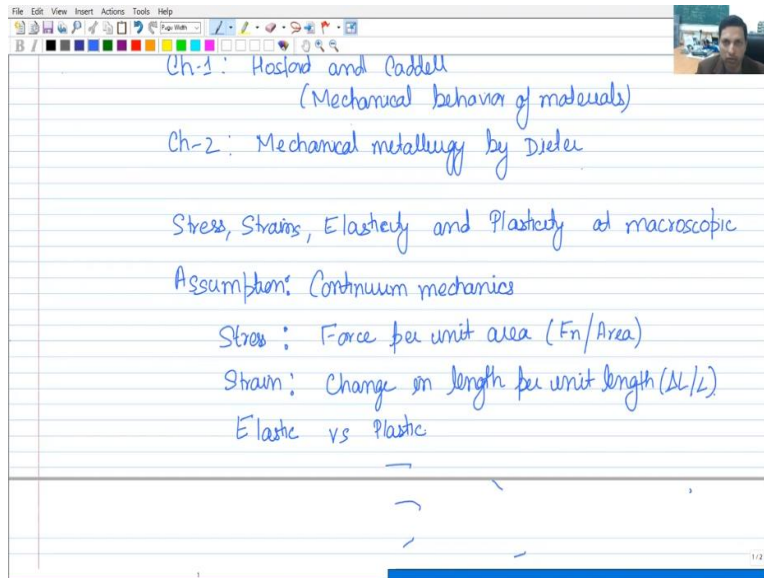 File Edit View Insert Actions Tools Help
Page Width
B I
Ch-1: Hosford and Caddell
(Mechanical behavior of materials)
Ch-2: Mechanical metallurgy by Dieter
Stress, Strains, Elasticity and Plasticity at macroscopic
Assumption: Continuum mechanics
Stress: Force per unit area (Fn/Area)
Strain: Change in length per unit length (ΔL/L)
Elastic vs Plastic
1/2
1